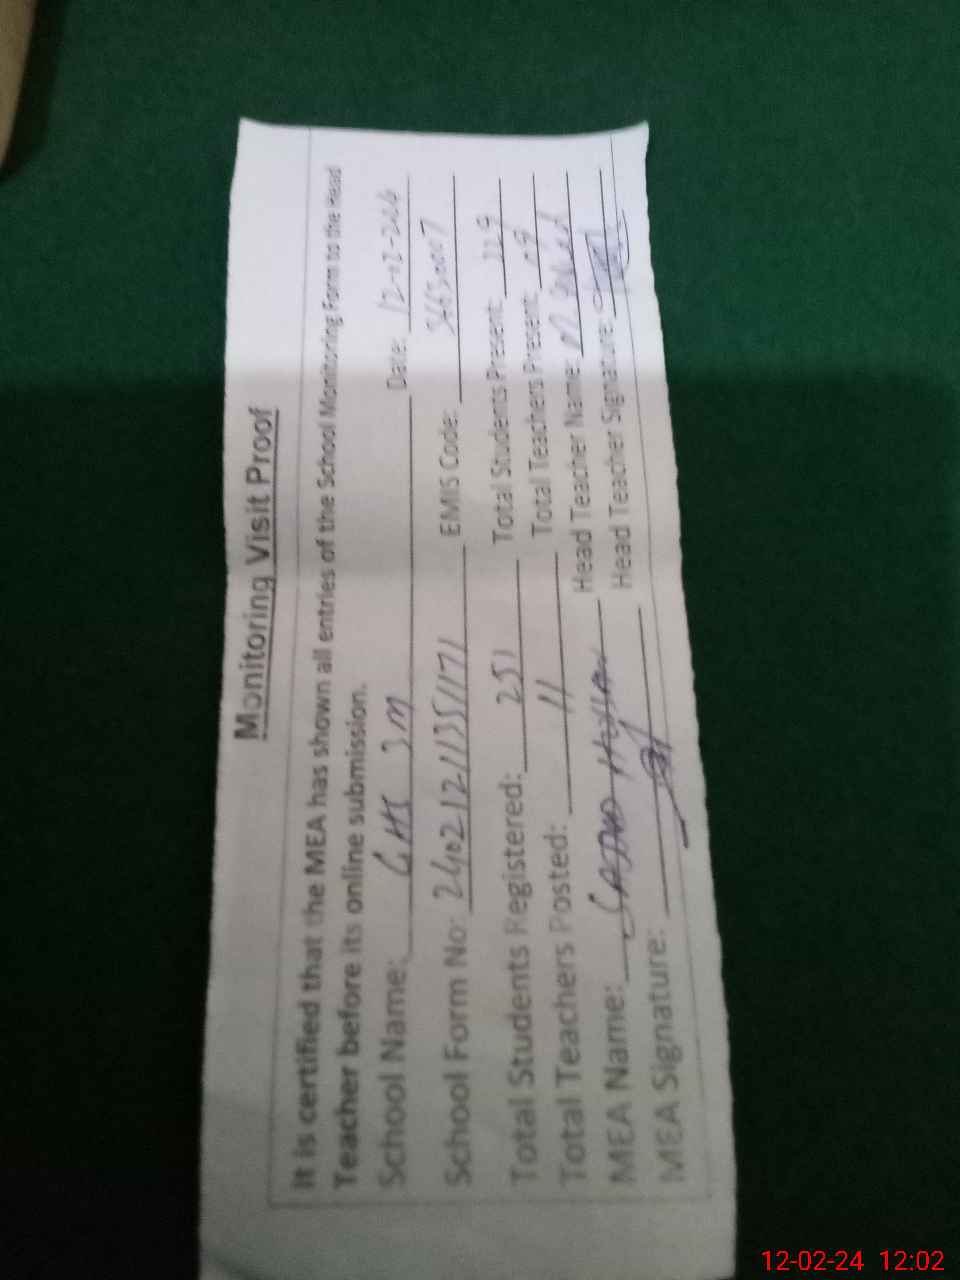 Monitoring Visit Proof
It is certified that the MEA has shown all entries of the School Monitoring Form to the Head
Teacher before its online submission.
School Name: GHS 3M Date: 12-02-
School Form No: EMIS Code:
Total Students Registered: 251 Total Students Present: 229
Total Teachers Posted: 11 Total Teachers Present: 09
MEA Name: Head Teacher Name:
MEA Signature: Head Teacher Signature:
12-02-24 12:02